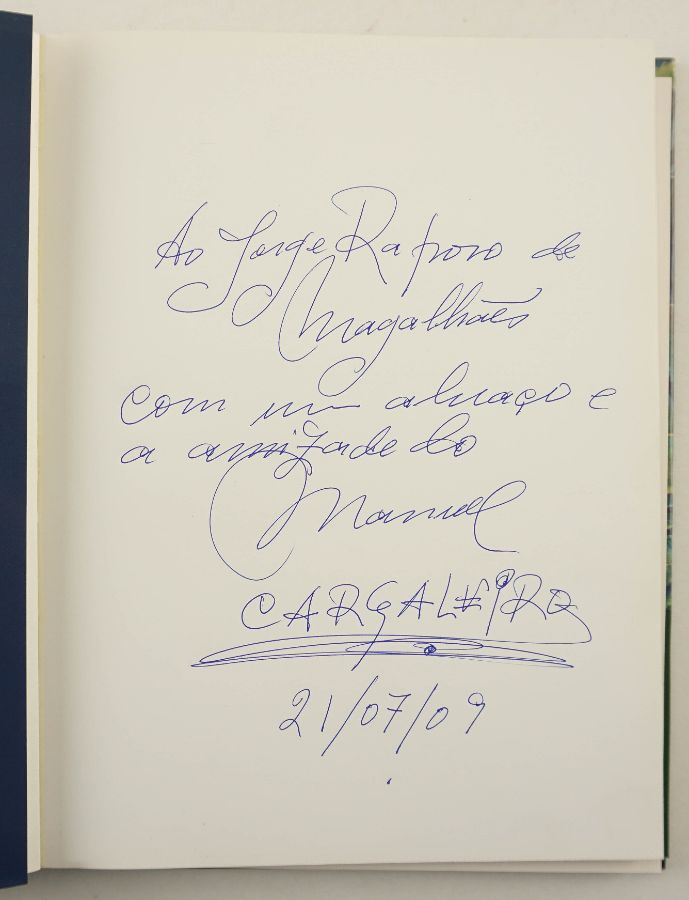 Ao Jorge Raposo de
Magalhães
com um abraço e
a amizade do
Manuel
CARGALEIRO
21/07/09